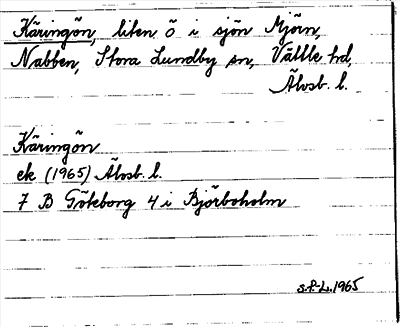 Käringön, liten ö i sjön Mjörn,
Nabben, Stora Lundby sn, Vättle hd,
Älvsb. l.
Käringön
ek (1965) Älvsb. l.
7 B Göteborg 4 i Björboholm
S.F.-L. 1965